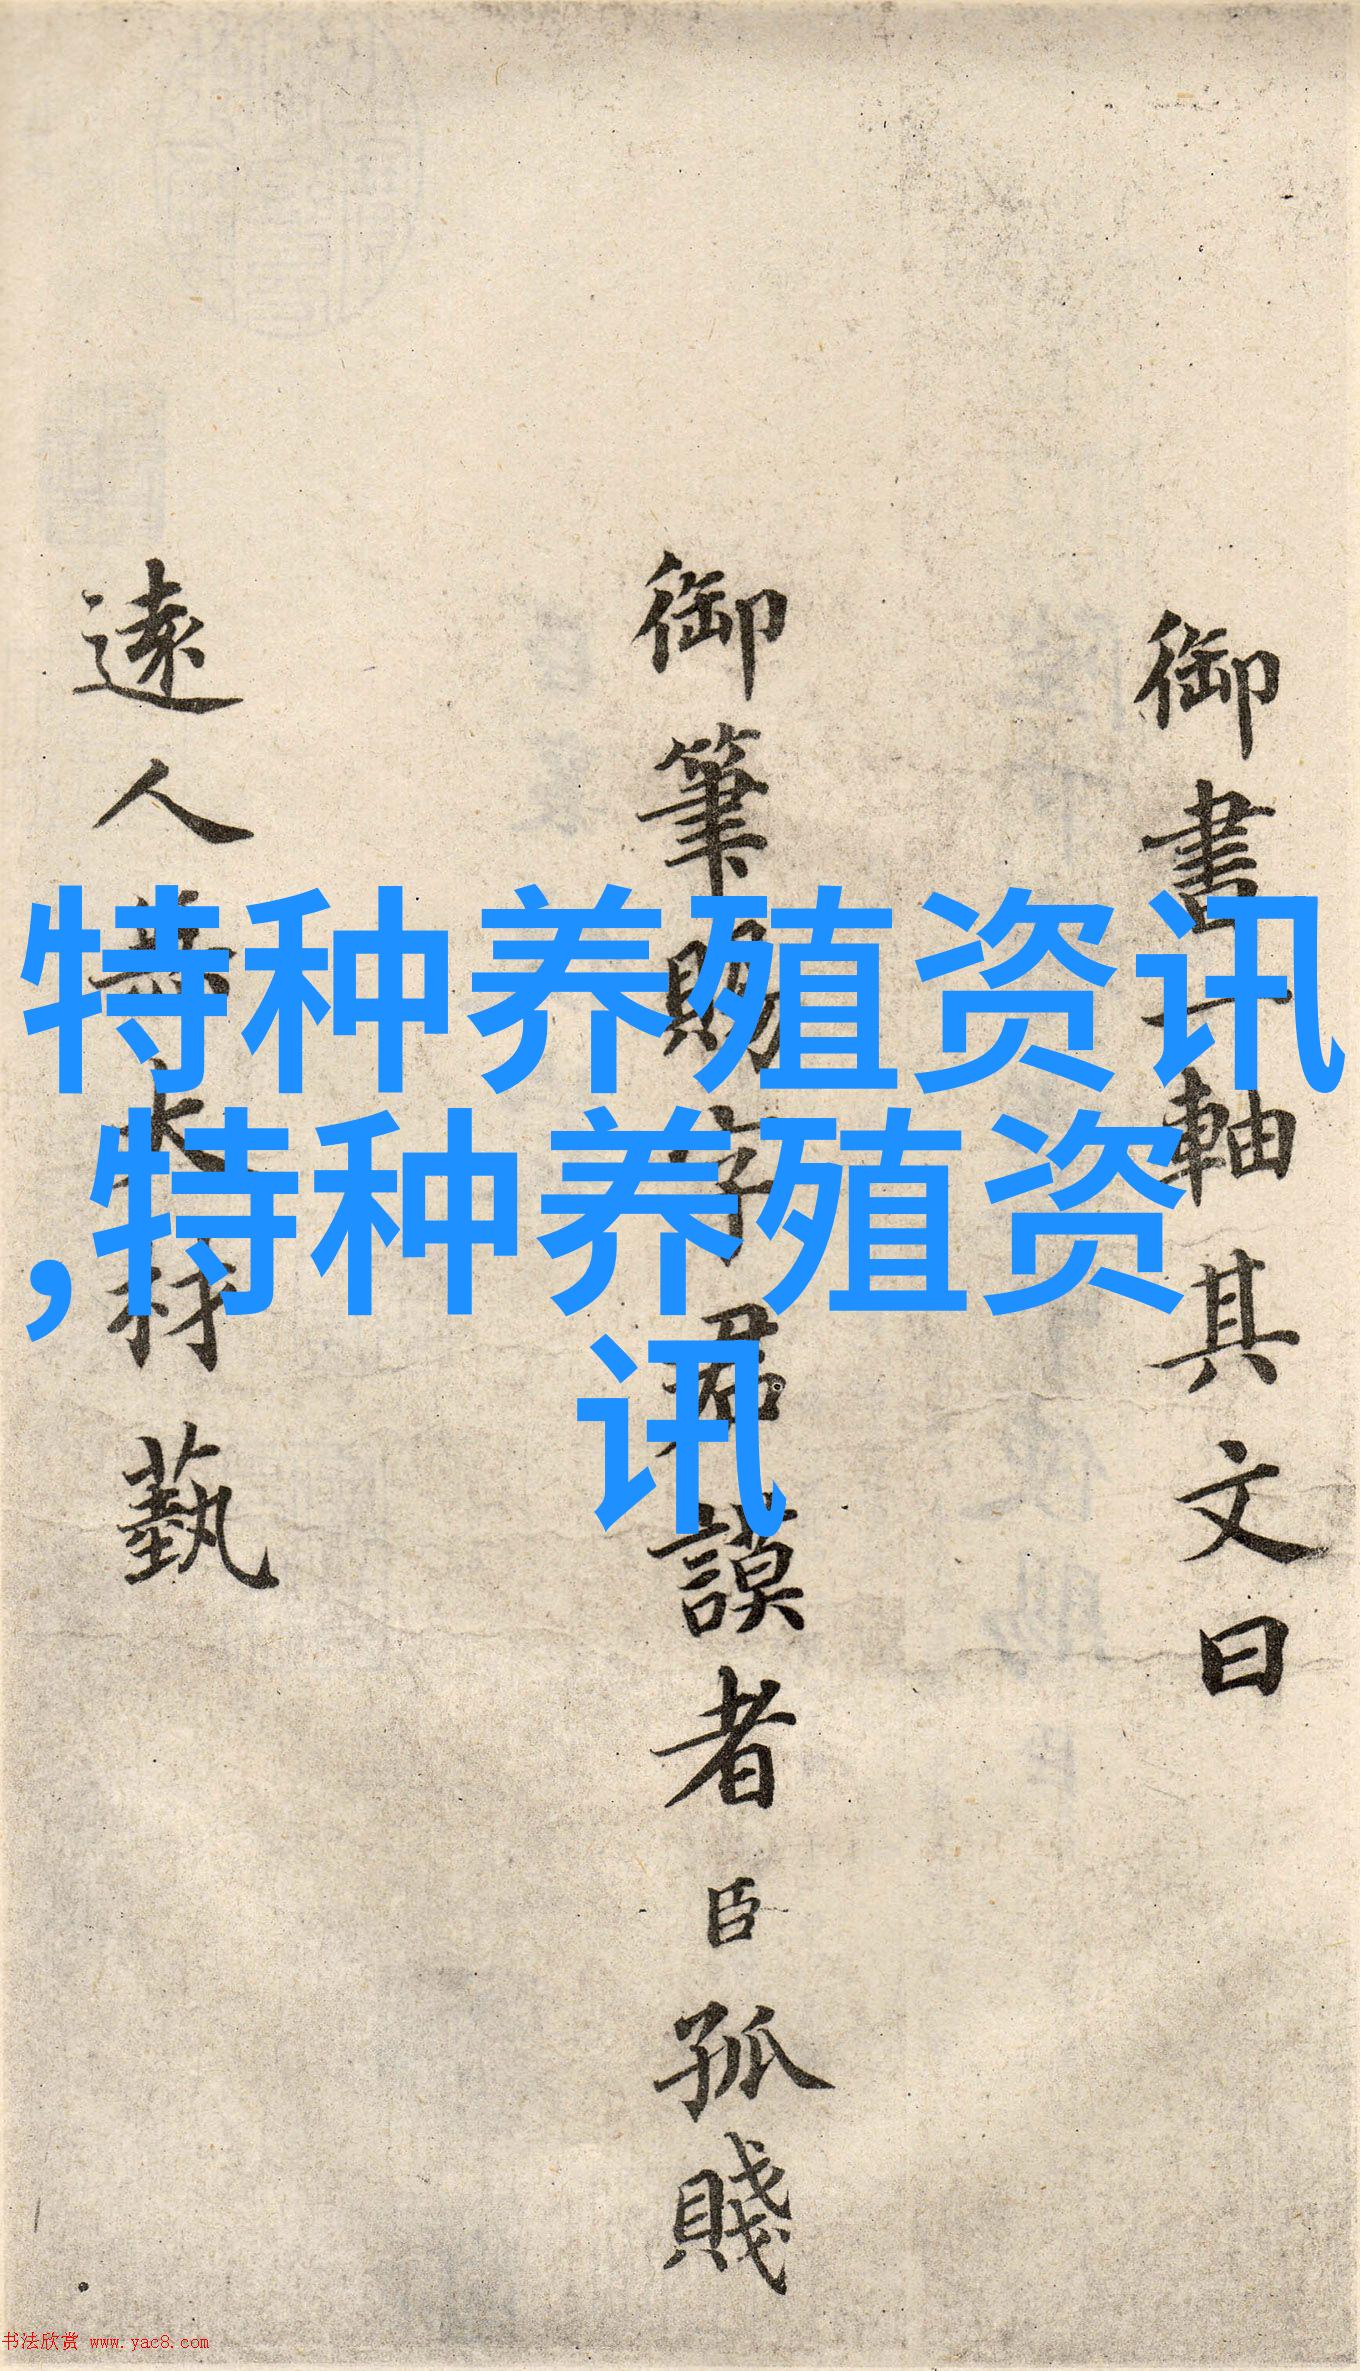 御書一軸其文曰
御筆賜字君謨者臣孤賤
遠人無大材藝
特种养殖资讯
,特种养殖资
讯
书法欣赏 www.yac8.com